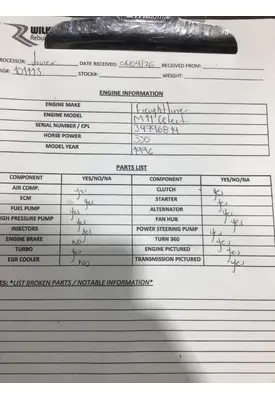 WILK
Rebui
ROCESSOR: Javier DATE RECEIVED: 06/04/26 RECEIVED FROM:
AG#: 101113 STOCK#: WEIGHT:
ENGINE INFORMATION
ENGINE MAKE Freightliner
ENGINE MODEL M11 Celect
SERIAL NUMBER / CPL 34796814
HORSE POWER 330
MODEL YEAR 1996
PARTS LIST
COMPONENT YES/NO/NA COMPONENT YES/NO/NA
AIR COMP. yes CLUTCH yes
ECM yes STARTER yes
FUEL PUMP yes ALTERNATOR yes
IGH PRESSURE PUMP yes FAN HUB yes
INJECTORS yes POWER STEERING PUMP yes
ENGINE BRAKE NO TURN 360 yes
TURBO yes ENGINE PICTURED yes
EGR COOLER NO TRANSMISSION PICTURED yes
ES: *LIST BROKEN PARTS / NOTABLE INFORMATION*